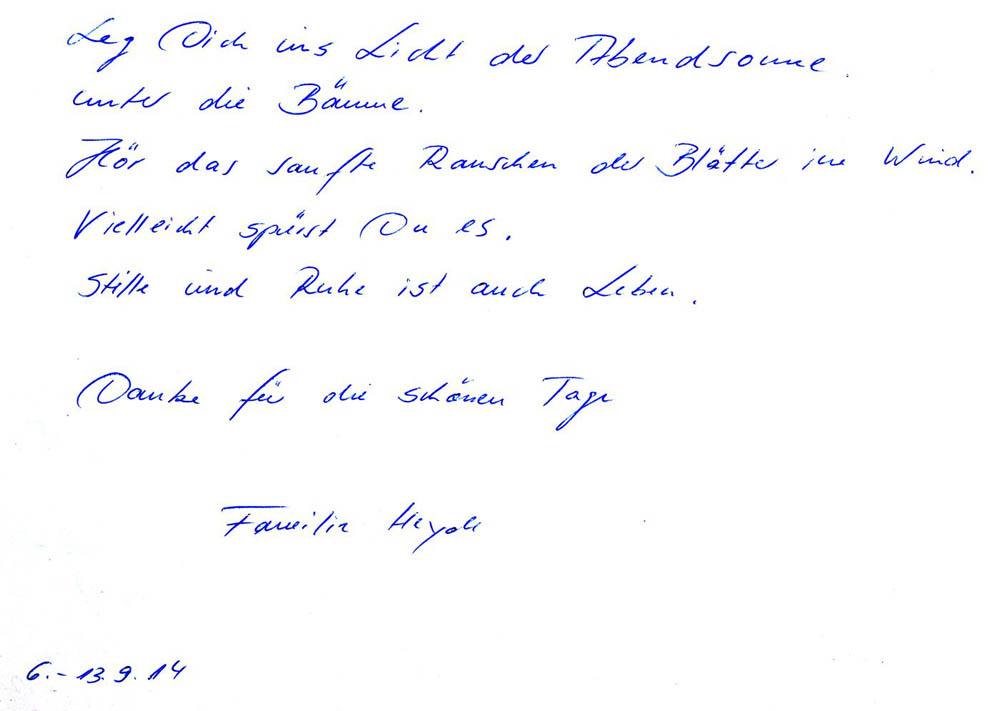 Leg Dich ins Licht der Abendsonne.
unter die Bäume.
Hör das sanfte Rauschen der Blätter im Wind.
Vielleicht spürst Du es.
Stille und Ruhe ist auch Leben.
Danke für die schönen Tage
Familie
6.-13.9.14